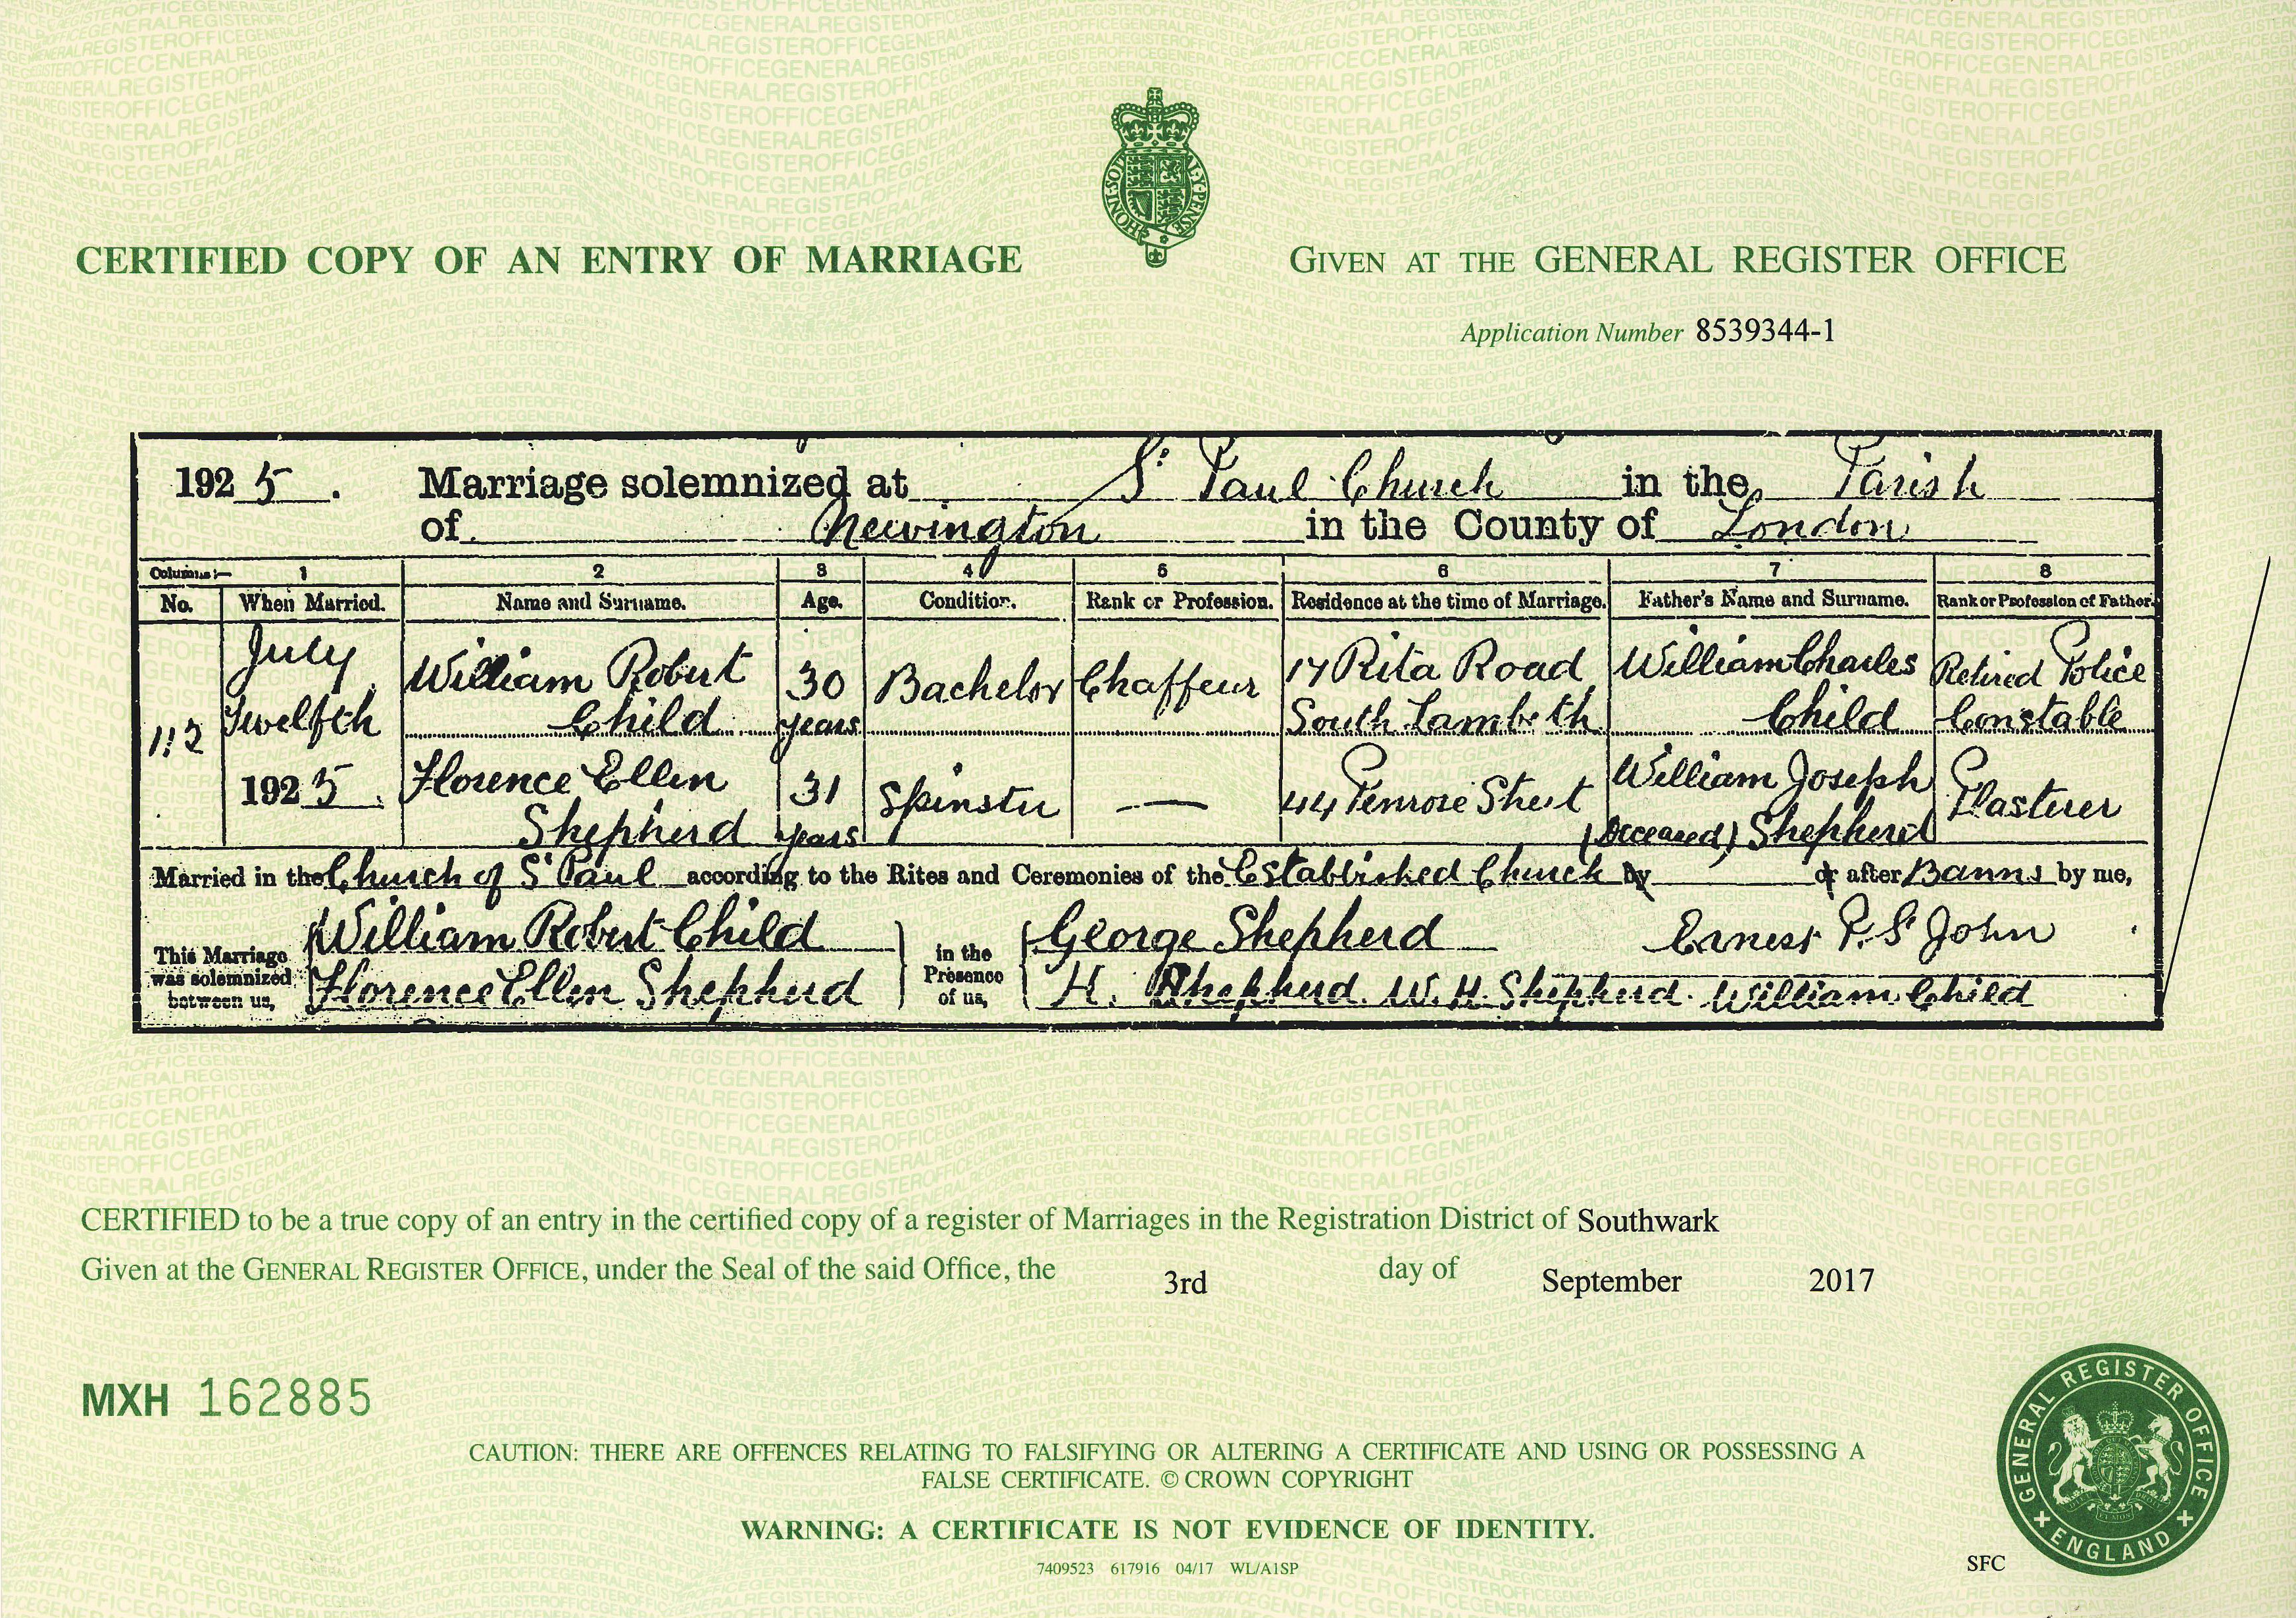 CERTIFIED COPY OF AN ENTRY OF MARRIAGE
HONI·SOIT
Y·PENSE
GIVEN AT THE GENERAL REGISTER OFFICE
Application Number 8539344-1
1925. Marriage solemnized at St Paul Church in the Parish
of Newington in the County of London
Columns:— 1 2 3 4 5 6 7 8
No. When Married. Name and Surname. Age. Condition. Rank or Profession. Residence at the time of Marriage. Father's Name and Surname. Rank or Profession of Father.
July William Robert 30 Bachelor Chaffeur 17 Rita Road William Charles Retired Police
112 Twelfth Child years South Lambeth Child Constable
1925. Florence Ellen 31 Spinster — 44 Penrose Street William Joseph Plasterer
Shepherd years (Deceased) Shepherd
Married in the Church of St Paul according to the Rites and Ceremonies of the Established Church by or after Banns by me,
This Marriage was solemnized between us, William Robert Child in the Presence of us, George Shepherd Ernest P. St John
Florence Ellen Shepherd H. Shepherd. W. H. Shepherd. William Child
CERTIFIED to be a true copy of an entry in the certified copy of a register of Marriages in the Registration District of Southwark
Given at the GENERAL REGISTER OFFICE, under the Seal of the said Office, the 3rd day of September 2017
MXH 162885
CAUTION: THERE ARE OFFENCES RELATING TO FALSIFYING OR ALTERING A CERTIFICATE AND USING OR POSSESSING A
FALSE CERTIFICATE. © CROWN COPYRIGHT
WARNING: A CERTIFICATE IS NOT EVIDENCE OF IDENTITY.
7409523 617916 04/17 WL/A1SP
SFC
GENERAL REGISTER OFFICE
ENGLAND